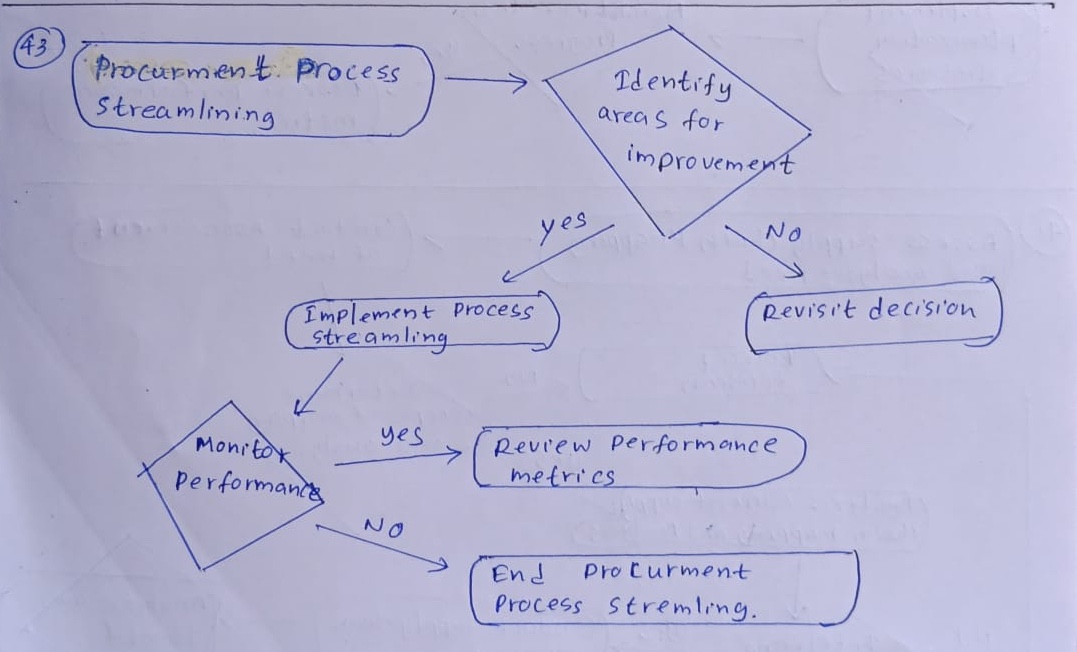 43
Procurment Process
streamlining
Identify
areas for
improvement
yes
No
Implement Process
streamling
Revisit decision
Monitor
Performance
yes
Review Performance
metrics
No
End Procurment
Process stremling.